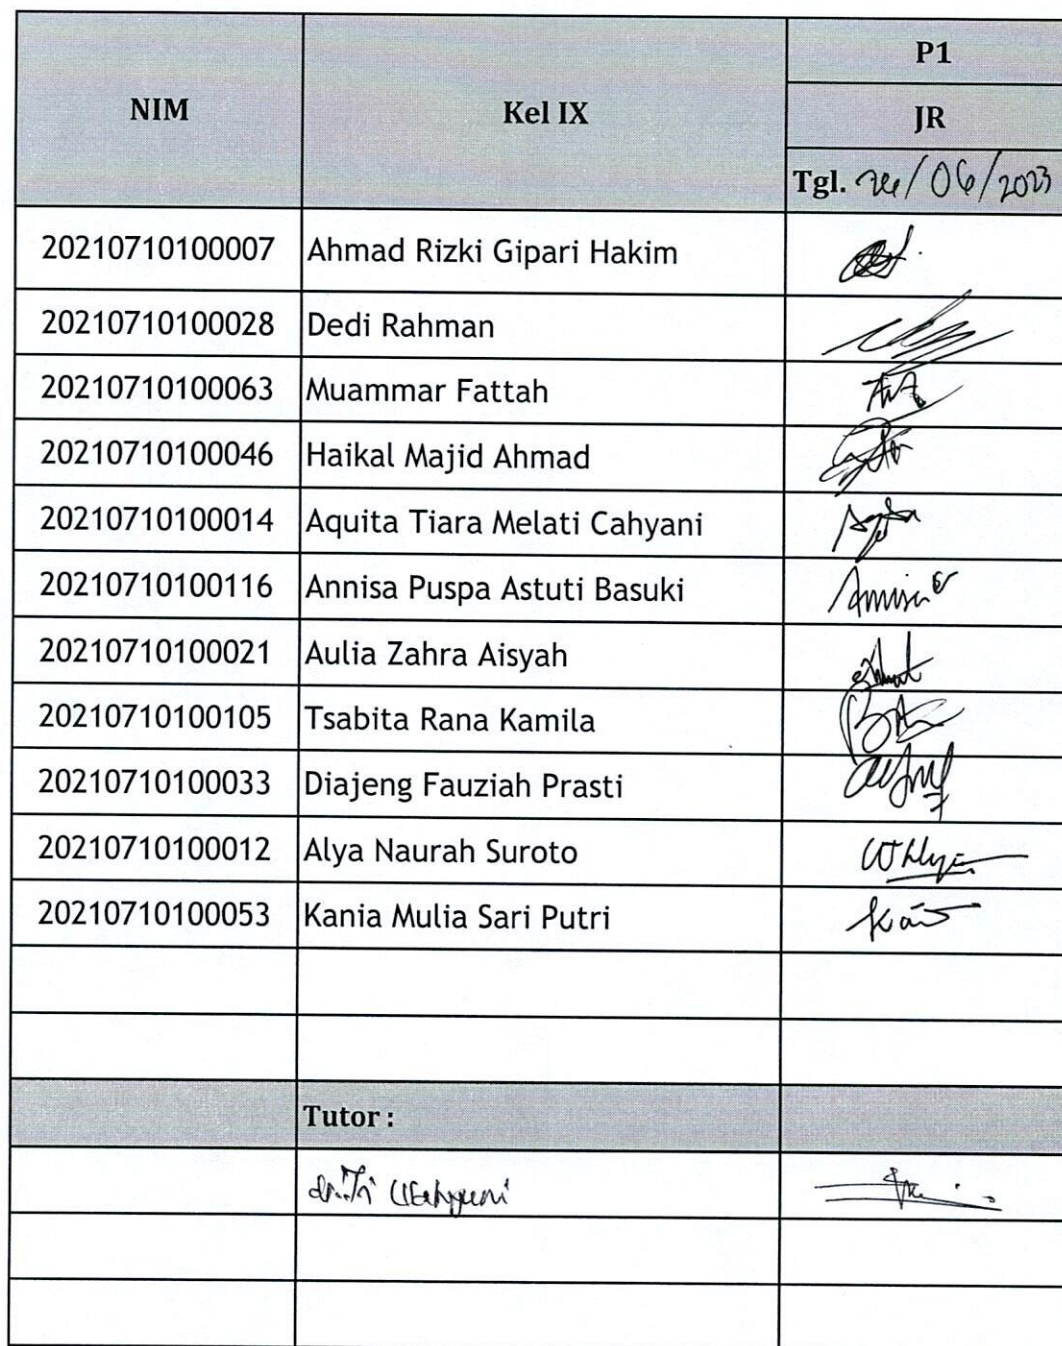 P1
NIM Kel IX JR
Tgl. /06/2023
20210710100007 Ahmad Rizki Gipari Hakim
20210710100028 Dedi Rahman
20210710100063 Muammar Fattah
20210710100046 Haikal Majid Ahmad
20210710100014 Aquita Tiara Melati Cahyani
20210710100116 Annisa Puspa Astuti Basuki
20210710100021 Aulia Zahra Aisyah
20210710100105 Tsabita Rana Kamila
20210710100033 Diajeng Fauziah Prasti
20210710100012 Alya Naurah Suroto
20210710100053 Kania Mulia Sari Putri
Tutor :
dr. Tri Wahyuni